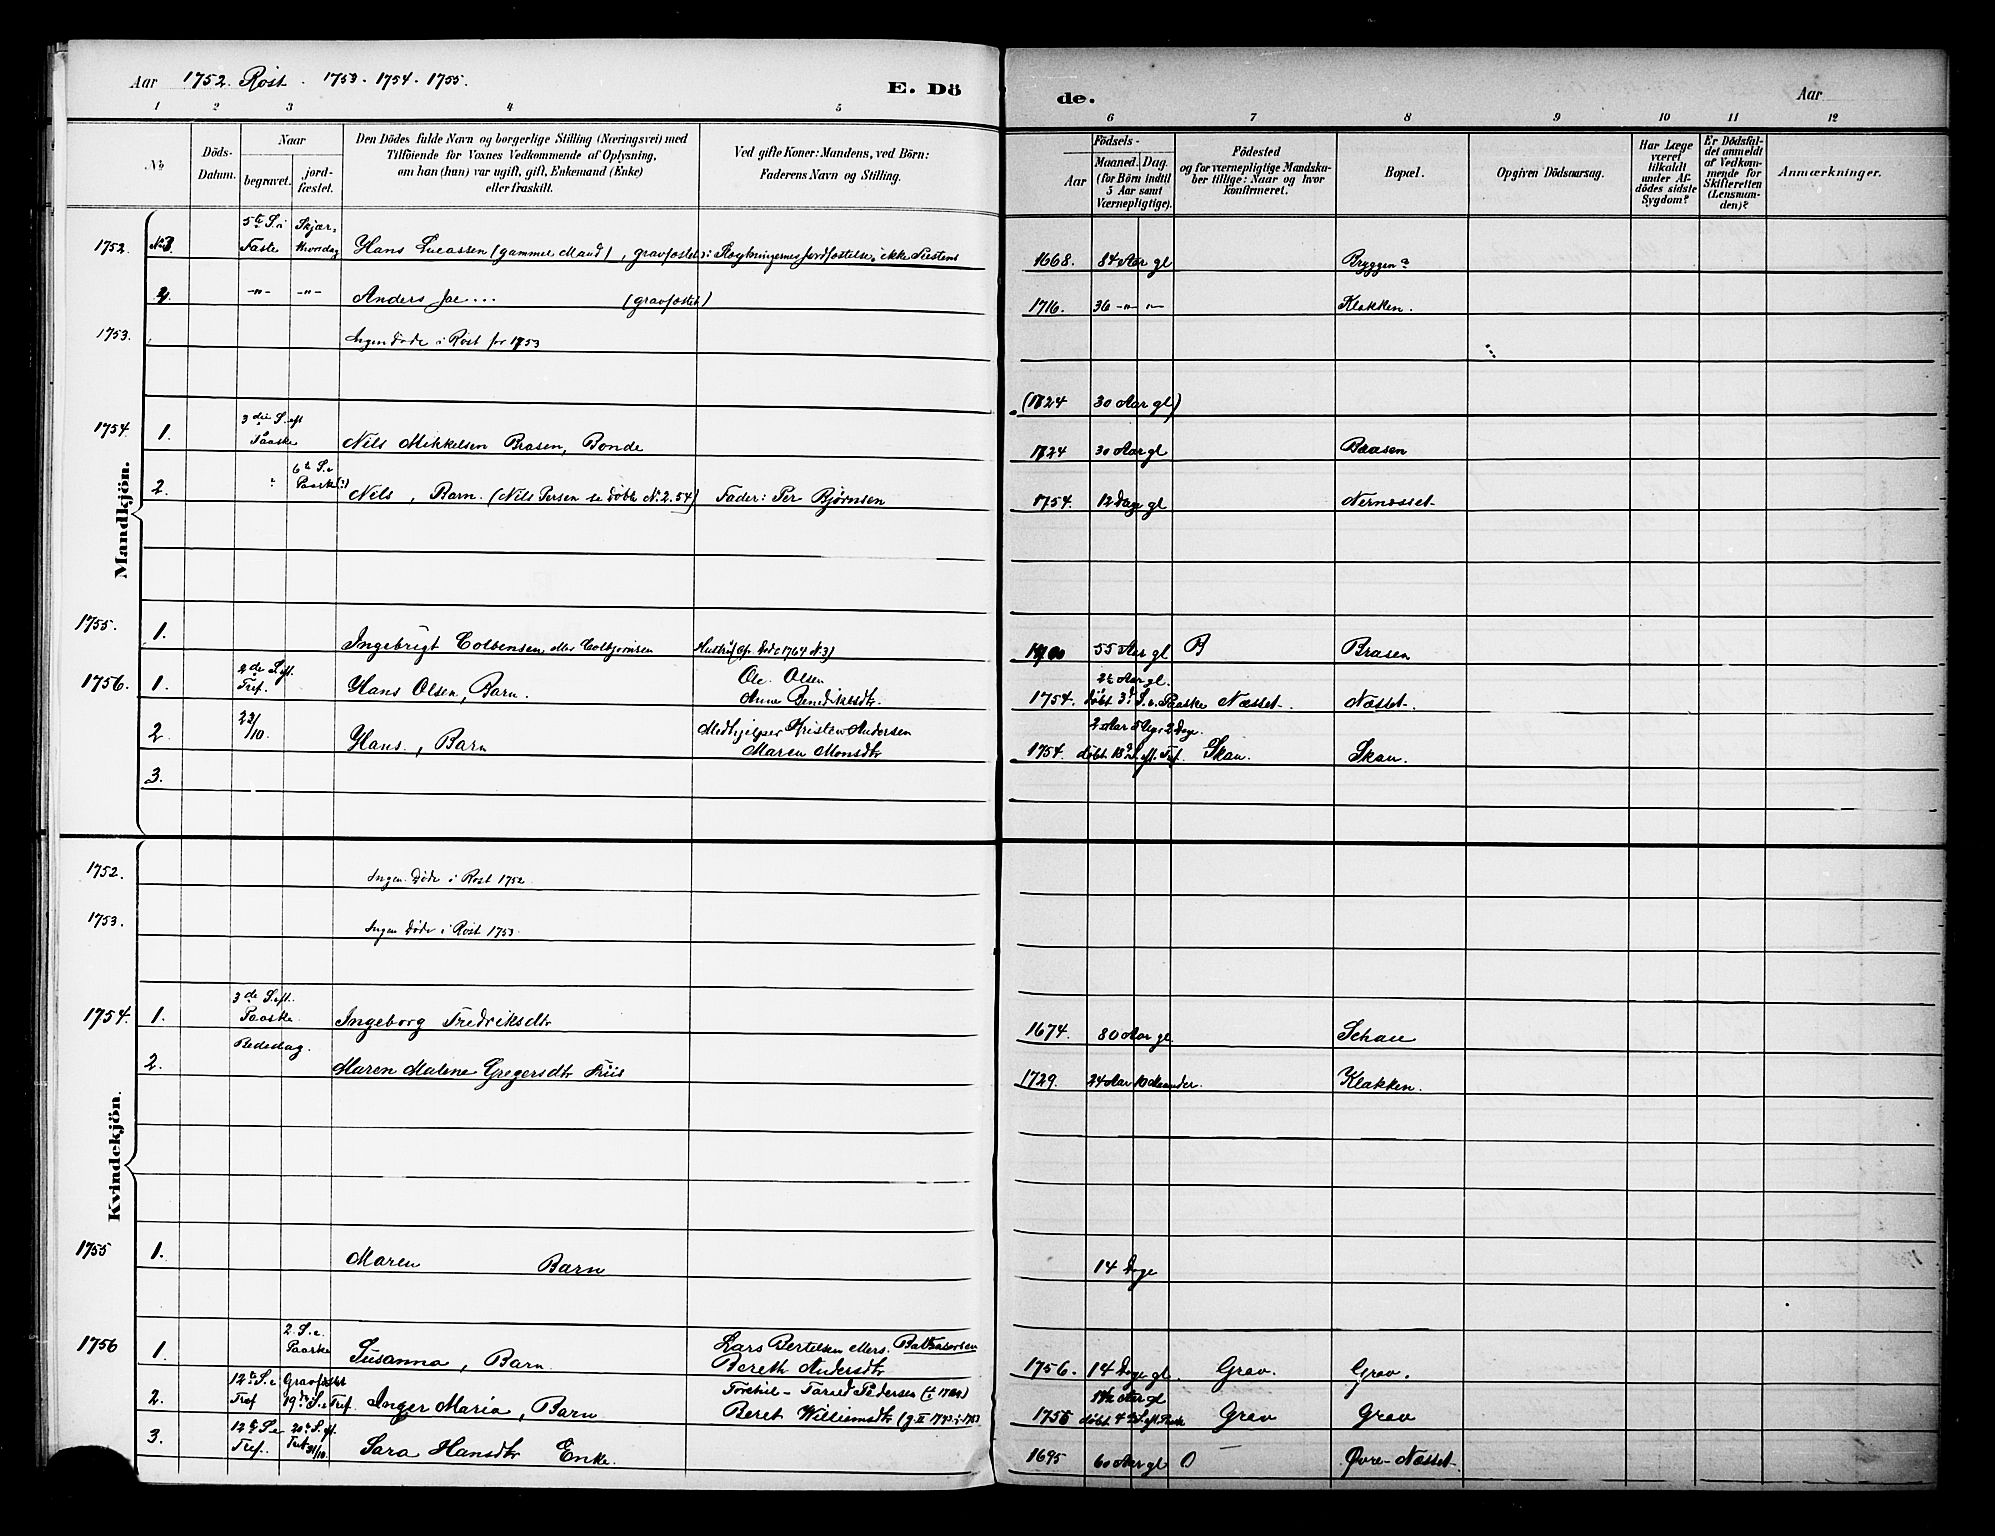 Aar 1752. Röst. 1753. 1754. 1755.
E. Dö
de.
Aar
1 2 3 4 5
6 7 8 9 10 11 12
No
Döds-
Datum.
Naar
begravet.
jord-
fæstet.
Den Dödes fulde Navn og borgerlige Stilling (Næringsvei) med
Tilföiende for Voxnes Vedkommende af Oplysning,
om han (hun) var ugift, gift, Enkemand (Enke)
eller fraskilt.
Ved gifte Koner: Mandens, ved Börn:
Faderens Navn og Stilling.
Födsels-
Aar
Maaned. Dag.
(for Börn indtil
5 Aar samt
Værnepligtige).
Födested
og for værnepligtige Mandska-
ber tillige: Naar og hvor
konfirmeret.
Bopæl.
Opgiven Dödsaarsag.
Har Læge
været
tilkaldt
under Af-
dödes sidste
Sygdom?
Er Dödsfal-
det anmeldt
af Vedkom-
mende for
Skifteretten
(Lensman-
den)?
Anmærkninger.
Mandkjön.
1752. 5te S. i Faste Skjær- thorsdag Hans Lucassen (gammel Mand), gravfæstet: ikke Liestens 1668. 84 Aar gl Bryggen?
2. -"- -"- Anders Jae.... (gravfæstet) 1716. 36 -"- -"- Klakken.
1753. Ingen døde i Røst for 1753
(1724 30 Aar gl)
1754. 1. 3die S. eft Paaske Nils Mikkelsen Brasen, Bonde 1724 30 Aar gl Baasen
2. 6te S. e Paaske(?) Nils, Barn. (Nils Persen se døbte No 2. 54) Fader: Per Bjørnsen 1754. 12 Dage gl Nernæsset
1755. 1. Ingebrigt Colbensen eller Colbjørnsen Hustru (cfr. døde 1764 N. 3) 1700 55 Aar gl B Brasen
1756. 1. 2de S. eft. Tref. Hans Olsen, Barn. Ole Olsen
Anne Bendiktsdtr. 1754. 2½ Aar gl. døbt 3d S. e. Paaske Næsset. Næsset.
2. 22/10. Hans, Barn Medhjelper Kristen Andersen
Maren Monsdtr 1754. 2 Aar 5 Uger 2 Dage. døbt. S. eft. Tref. Skau. Skau.
3.
Kvindekjön.
1752. Ingen Døde i Røst 1752
1753. Ingen Døde i Røst 1753.
1754. 1. 3de S. eft. Paaske Ingeborg Fredriksdtr 1674. 80 Aar gl. Schau
2. Bededag. Maren Malene Gregersdtr Friis 1729. 24 Aar 10 Maaneder. Klakken.
1755 1. Maren Barn 14 Dage
1756 1. 2. S. e. Paaske Susanna, Barn Lars Bertelsen ellers Baltzarsen
Bereth Andersdtr 1756. 14 Dage gl. Grav. Grav.
2. 12te S. e Tref Gravfæstet 19de S. e Tref. Inger Maria, Barn Torekil - Tarald Pedersen
Beret Williemsdtr 1755 1½ Aar gl døbt 4de S. eft. Paaske Grav Grav
3. 12te S. e Tref. 20de S. eft. Tref 31/10. Sara Hansdtr Enke. 1695 60 Aar gl O - Øvre-Næsset.